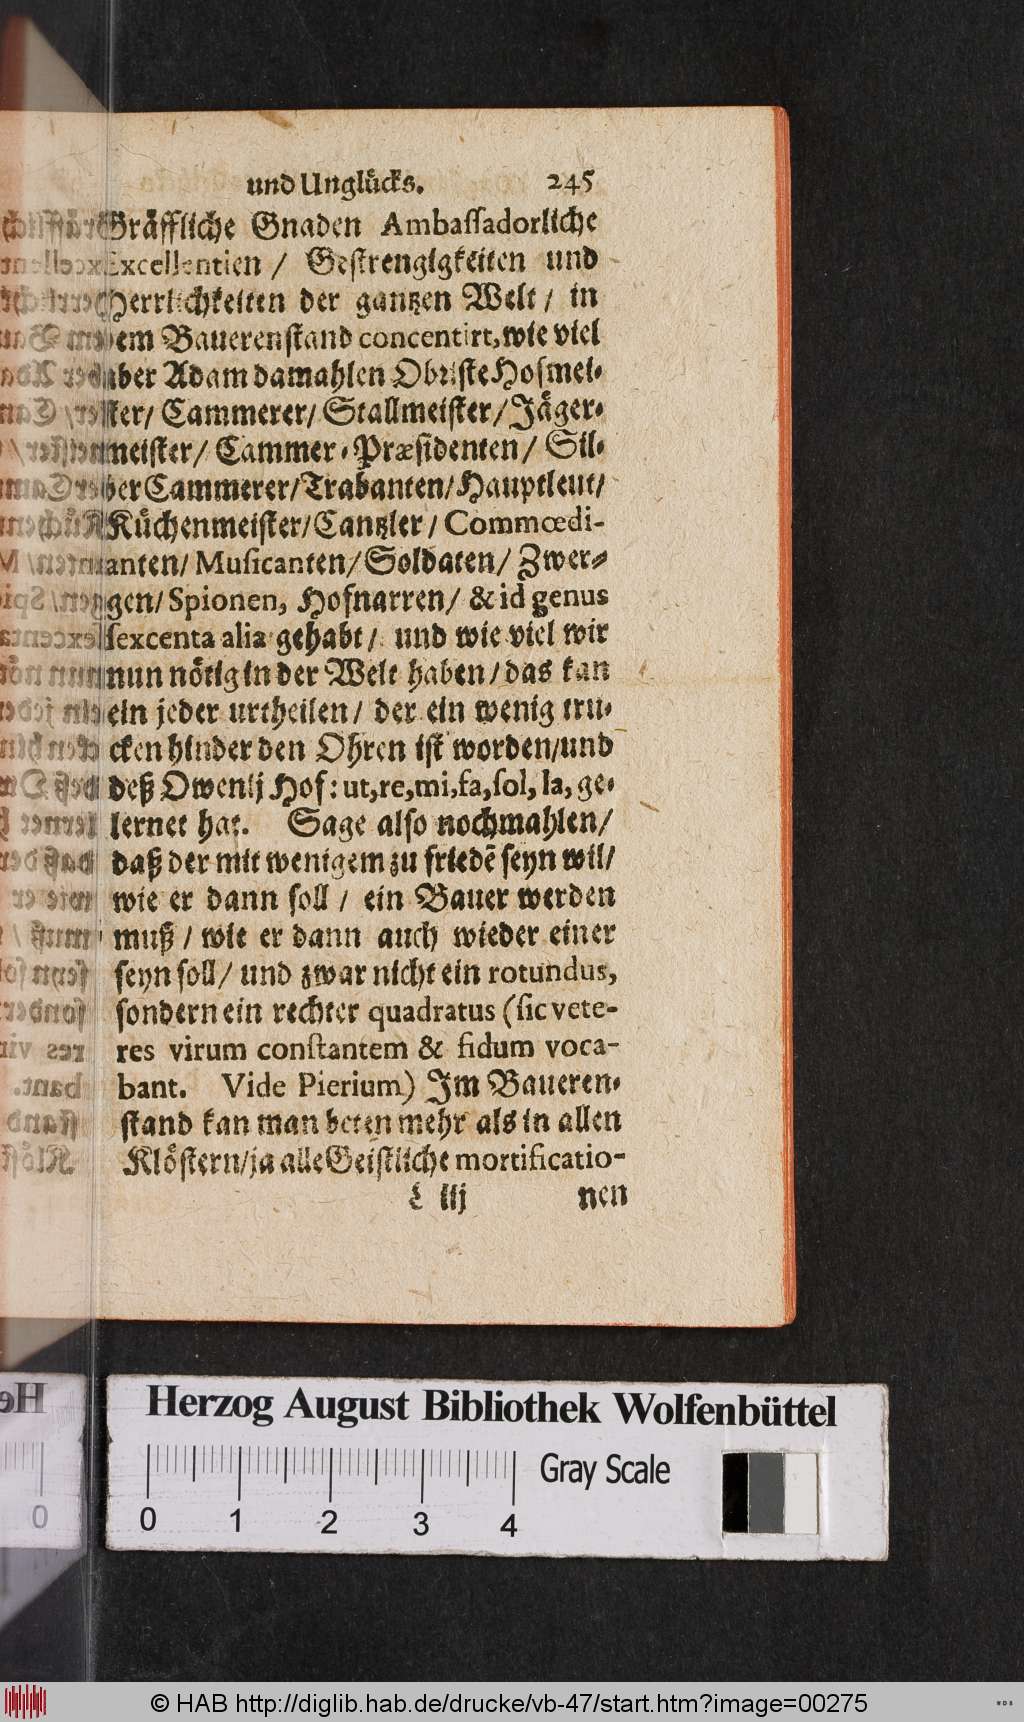 und Unglücks. 245
Gräffliche Gnaden Ambaſſadorliche
Excellentien / Geſtrengigkeiten und
Herrlichkeiten der gantzen Welt / in
dem Bauerenſtand concentirt, wie viel
aber Adam damahlen Obriſte Hofmei-
ſter/ Cammerer/ Stallmeiſter/ Jäger-
meiſter/ Cammer-Præſidenten/ Sil-
ber Cammerer/ Trabanten/ Hauptleut/
Küchenmeiſter/ Cantzler / Commœdi-
anten/ Muſicanten/ Soldaten/ Zwer-
gen/ Spionen, Hofnarren/ & id genus
ſexcenta alia gehabt / und wie viel wir
nun nötig in der Welt haben/ das kan
ein jeder urtheilen/ der ein wenig tru-
cken hinder den Ohren iſt worden/ und
deß Owenij Hof: ut, re, mi, fa, ſol, la, ge-
lernet hat. Sage alſo nochmahlen/
daß der mit wenigem zu friedē ſeyn wil/
wie er dann ſoll / ein Bauer werden
muß / wie er dann auch wieder einer
ſeyn ſoll/ und zwar nicht ein rotundus,
ſondern ein rechter quadratus (ſic vete-
res virum conſtantem & fidum voca-
bant. Vide Pierium) Im Baueren-
ſtand kan man beten mehr als in allen
Klöſtern/ ja alle Geiſtliche mortificatio-
L iij nen
Herzog August Bibliothek Wolfenbüttel
Gray Scale
0 1 2 3 4
© HAB http://diglib.hab.de/drucke/vb-47/start.htm?image=00275